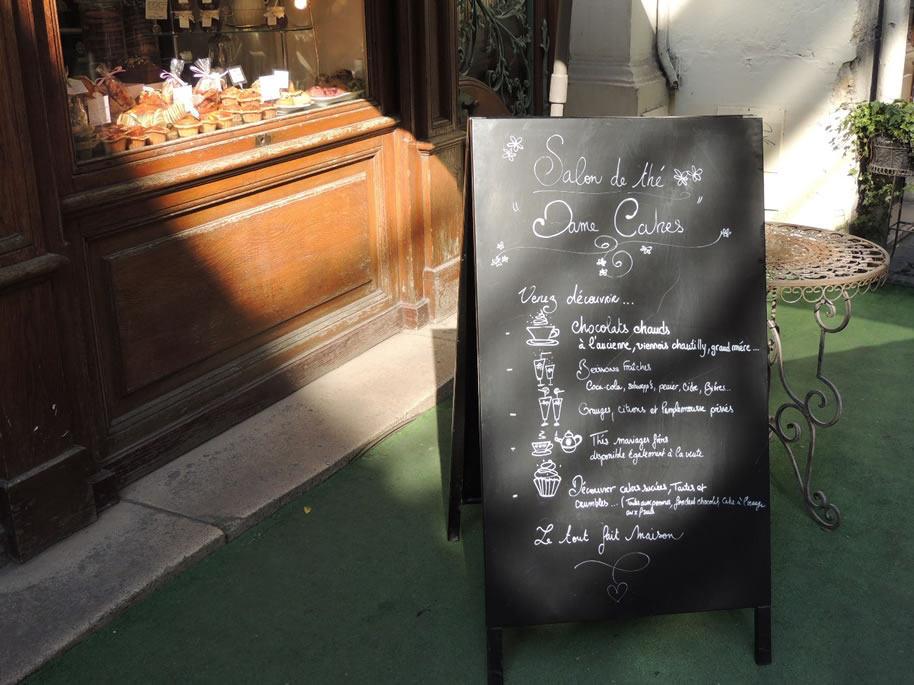 Salon de thé
" Dame Cakes "
Venez découvrir...
- Chocolats chauds
à l'ancienne, viennois chantilly, grand mère...
- Boissons Fraîches
Coca-cola, schweppes, perrier, cidre, Bières...
- Oranges, citrons et Pamplemousse pressés
- Thés mariages frères
disponible également à la vente
- Découvrer cakes sucrées, Tartes et
crumbles... (Tartes aux pommes, fondant chocolat Cake à l'orange
aux fruits
Le tout fait Maison